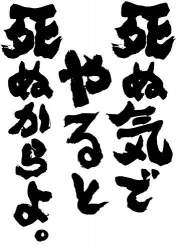 死ぬ気で
やると
死ぬからよ。